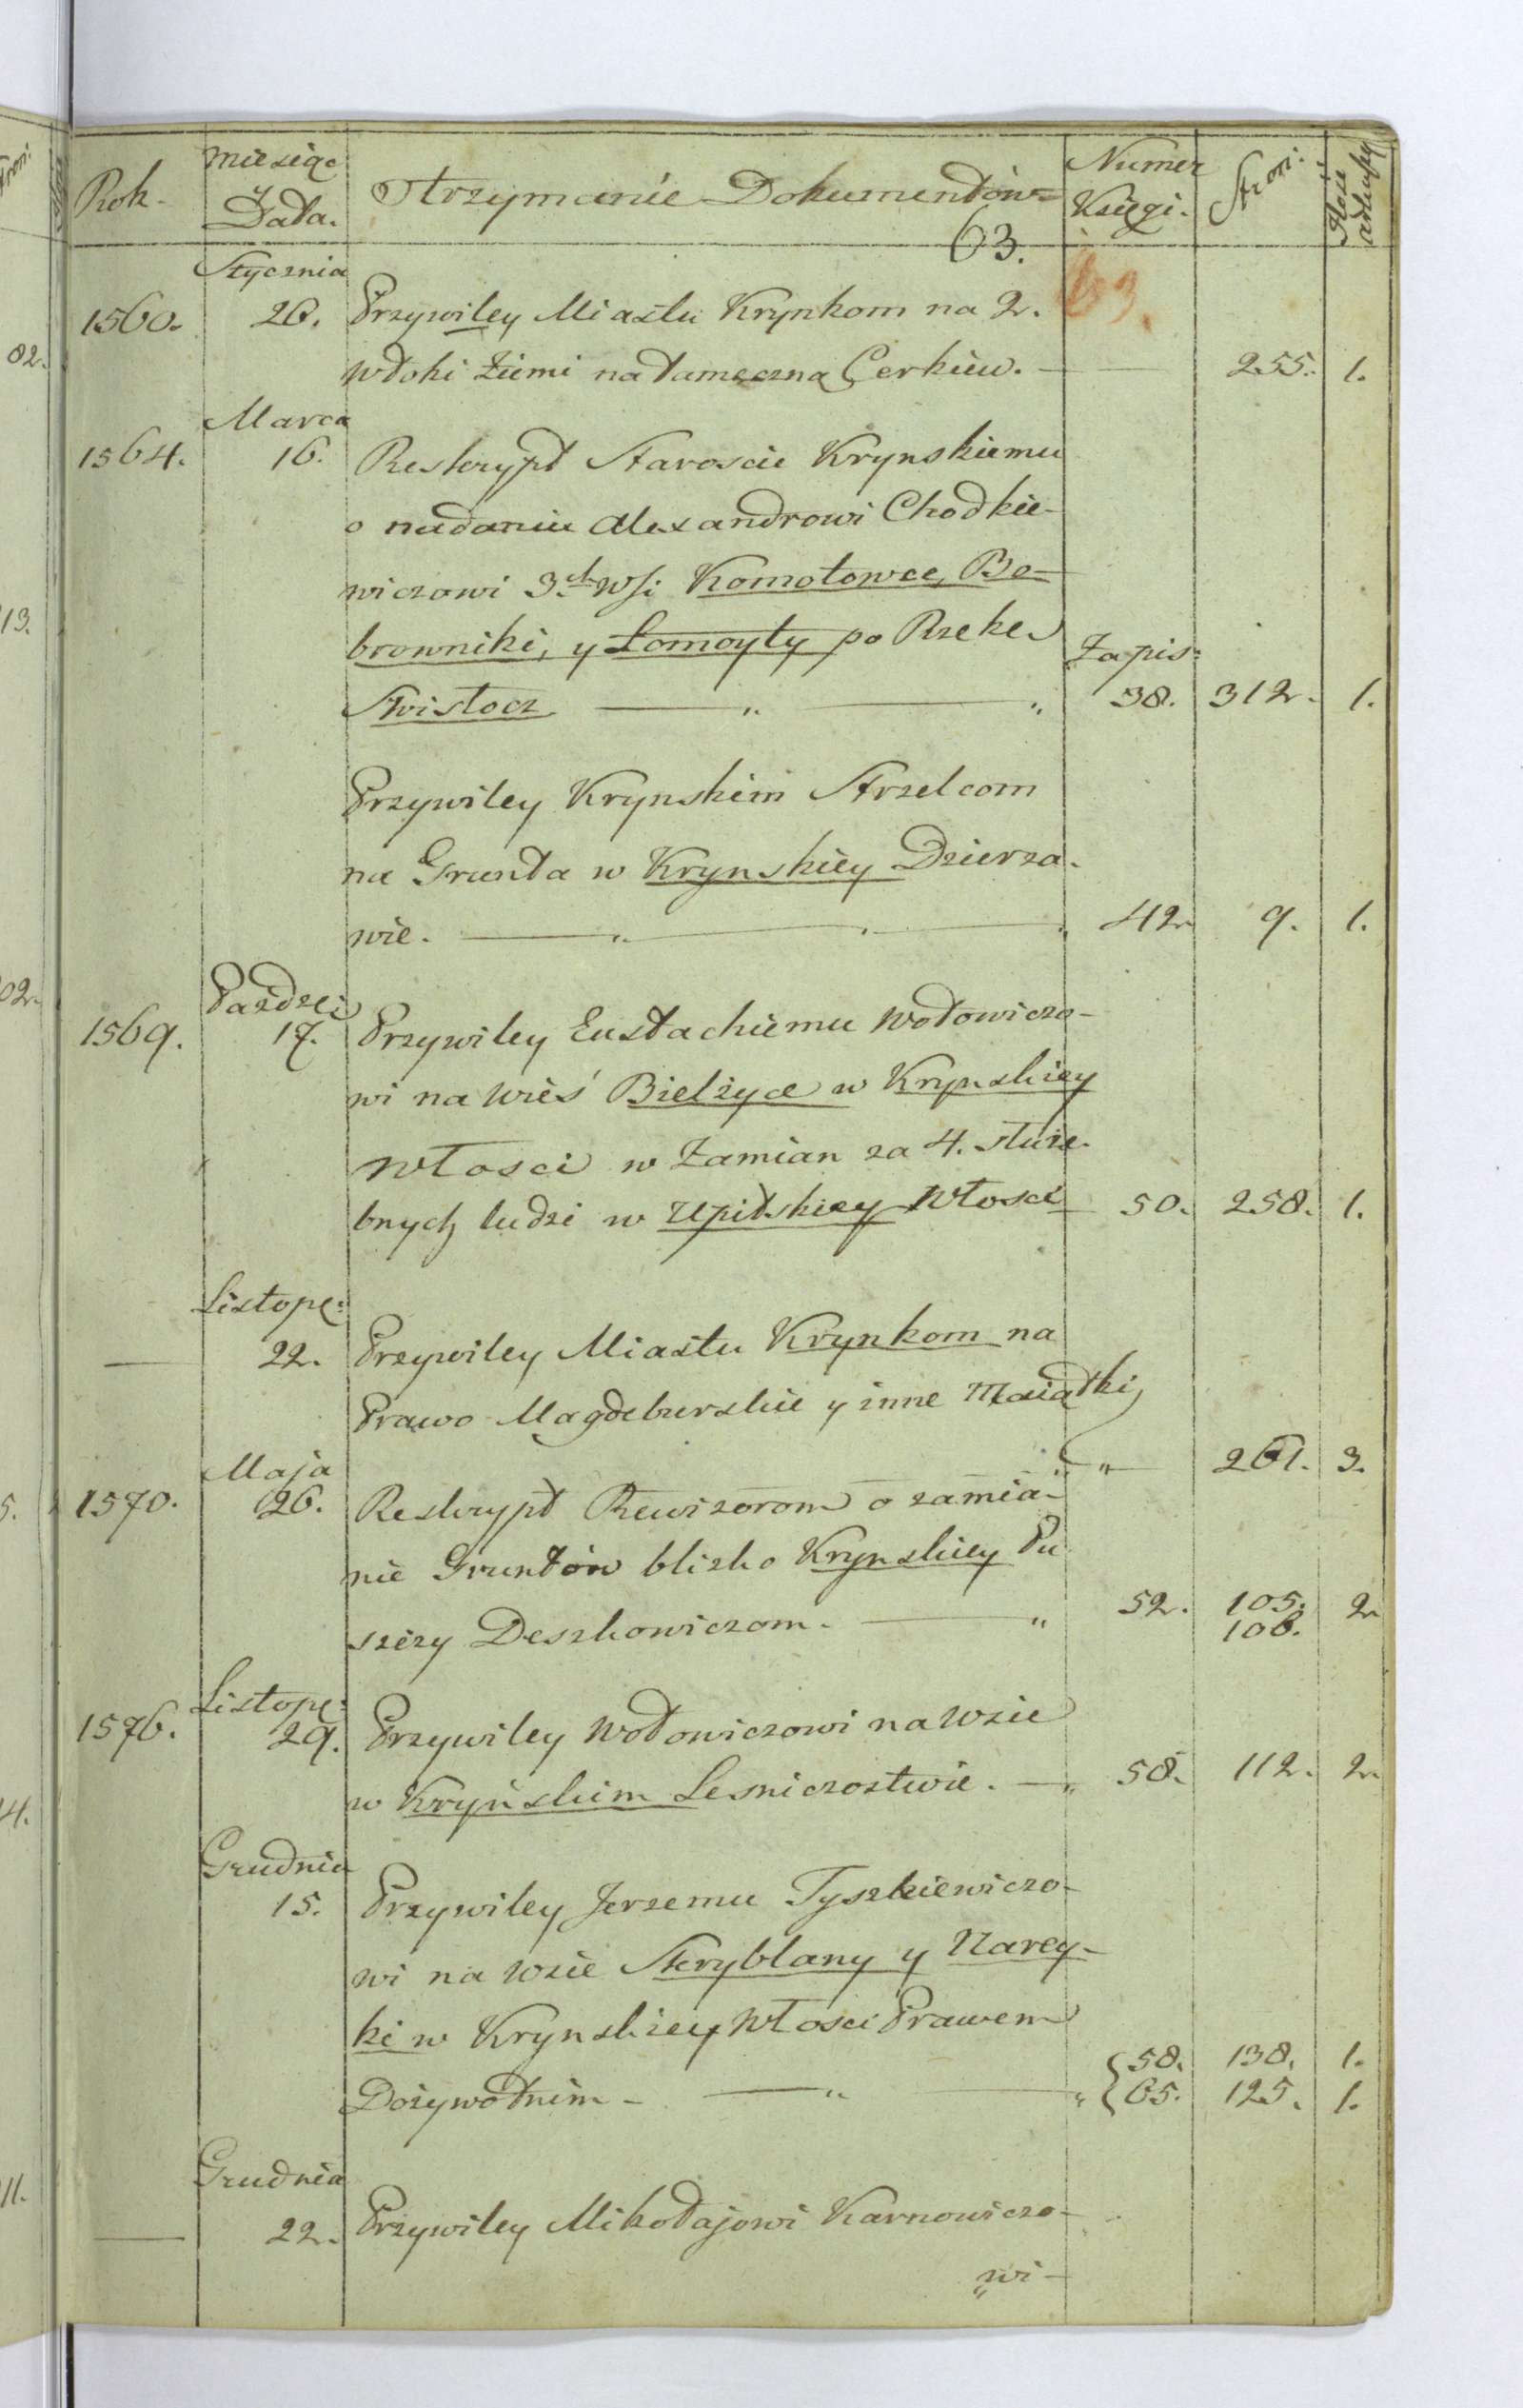 Rok. miesiąc y Data. Otrzymanie Dokumentów Numer Księgi. Stron. Ilość
63.
63.
Stycznia
1560. 26. Przywiley Miastu Krynkom na 2.
włoki ziemi na tameczną Cerkiew. — — 255. 1.
Marca
1564. 16. Reskrypt Staroscie Krynskiemu
o nadaniu Alexandrowi Chodkie-
wiczowi 3ch wsi Komotowce, Bo-
browniki, y Łomoyty po Rzekę
Zapis:
Swisłocz — " — " 38. 312. 1.
Przywiley Krynskim Strzelcom
na Grunta w Krynskiey Dzierza-
wie. — " — " — " 42. 9. 1.
Paździer
1569. 17. Przywiley Eustachiemu Wołowiczo-
wi na wieś Bielżyce w Krynskiey
Włosci w Zamian za 4. służe-
bnych ludzi w Upitskiey Włosci 50. 258. 1.
Listopa:
— 22. Przywiley Miastu Krynkom na
Prawo Magdeburskie y inne Maiątki
" " — 261. 3.
Maja
1570. 26. Reskrypt Rewizorom o zamia-
nie Gruntów blizko Krynskiey Pu
szczy Deszkowiczom. — " 52. 105. 2.
106.
Listopa:
1576. 29. Przywiley Wołowiczowi na wsie
w Kryńskim Lesniczostwie. — " 58. 112. 2.
Grudnia
15. Przywiley Jerzemu Tyszkiewiczo-
wi na wsie Skryblany y Narey-
ki w Krynskiey Włosci Prawem
{ 58. 138. 1.
Dożywotnim — — " — " { 65. 125. 1.
Grudnia
— 22. Przywiley Mikołajowi Karnowiczo-
wi —